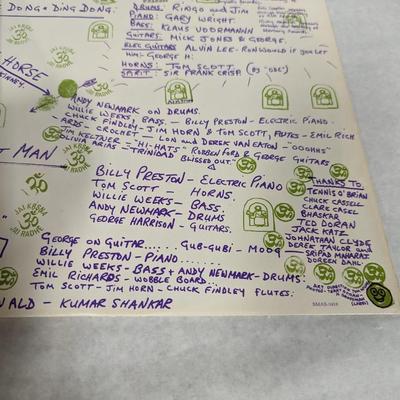 DONG - DING DONG:
DRUMS: RINGO AND JIM
PIANO: GARY WRIGHT.
BASS: KLAUS VOORMANN
GUITARS: MICK JONES & GEORGE.
ELEC GUITARS ALVIN LEE - RON WOULD IF YOU LET
HIM: GEORGE H:
HORNS: TOM SCOTT.
SPIRIT: SIR FRANK CRISP
HORSE
ANDY NEWMARK ON DRUMS.
WILLIE WEEKS, BASS. - BILLY PRESTON - ELECTRIC PIANO.
CHUCK FINDLEY - JIM HORN & TOM SCOTT, FLUTES - EMIL RICH
-ARDS - CROCHET - LON AND DEREK VAN EATON - "OOOHHS"
JIM KELTNER - "HI-HATS" - ROBBEN FORD & GEORGE GUITARS
OLIVIA ARIAS - "TRINIDAD BLISSED OUT."
JAI KRSNA
JAI RADHE
MAN
BILLY PRESTON - ELECTRIC PIANO
TOM SCOTT - HORNS.
WILLIE WEEKS - BASS.
ANDY NEWMARK - DRUMS
GEORGE HARRISON - GUITARS.
JAI KRSNA
JAI RADHE
THANKS TO.
TENNIS O'BRIEN
CHUCK CASSELL
CLARE ODELL
BHASKAR
TED DORAN
JACK KATZ
JOHNATHAN CLYDE
DEREK TAYLOR AND
SRIPAD MAHARAJ
DOREEN DAHL.
GEORGE ON GUITAR..... GUB-GUBI - MOOG
BILLY PRESTON - PIANO.......
WILLIE WEEKS - BASS + ANDY NEWMARK - DRUMS:
EMIL RICHARDS - WOBBLE BOARD...
TOM SCOTT - JIM HORN - CHUCK FINDLEY FLUTES:
NALD - KUMAR SHANKAR